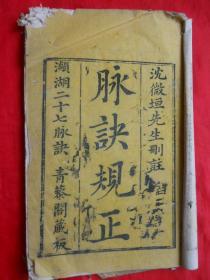 沈微垣先生刪註
脉訣規正
瀕湖二十七脉訣 青藜閣藏板